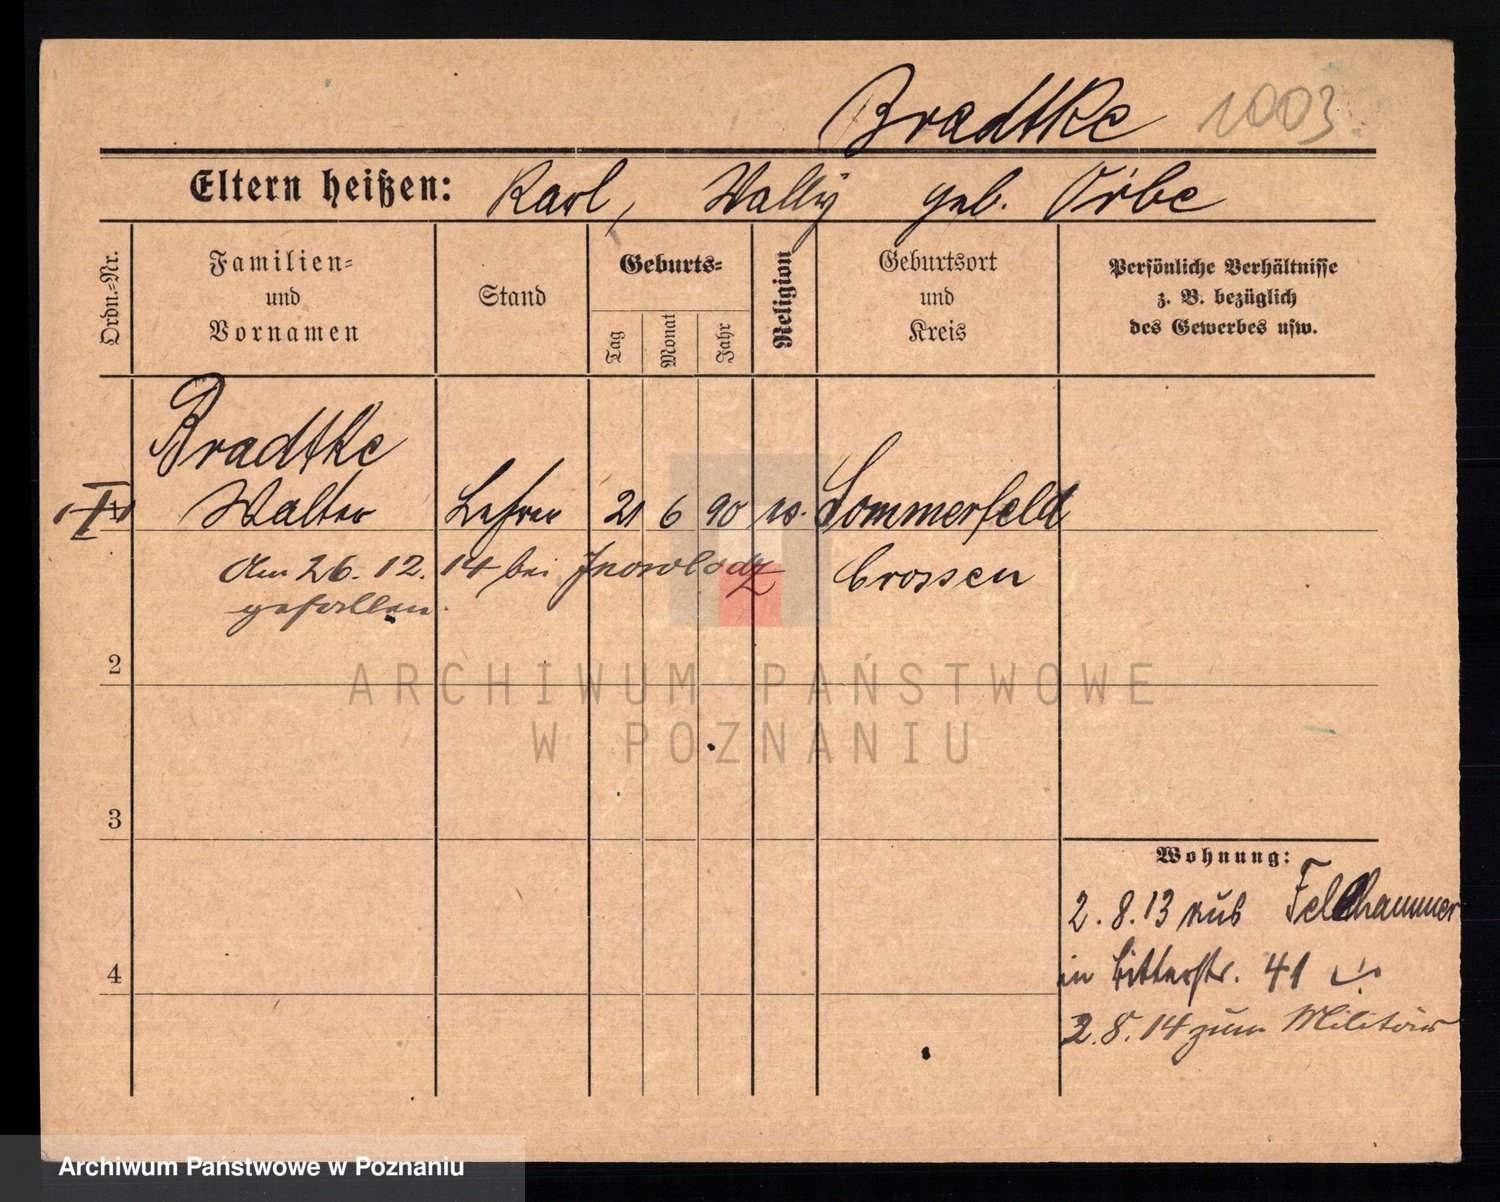 Bradtke 1003
Eltern heißen: Karl, Wally geb. Orbe
Ordn.-Nr.
Familien- und Vornamen
Stand
Geburts-
Tag
Monat
Jahr
Religion
Geburtsort und Kreis
Persönliche Verhältnisse
z. B. bezüglich
des Gewerbes usw.
Bradtke
Walter Lehrer 21 6 90 Sommerfeld
Am 26. 12. 14 bei Inowlodz Crossen
gefallen.
2
3
4
Wohnung:
2. 8. 13 aus Feldhammer
in Bitterstr. 41
2. 8. 14 zum Militär
ARCHIWUM PAŃSTWOWE
W POZNANIU
Archiwum Państwowe w Poznaniu